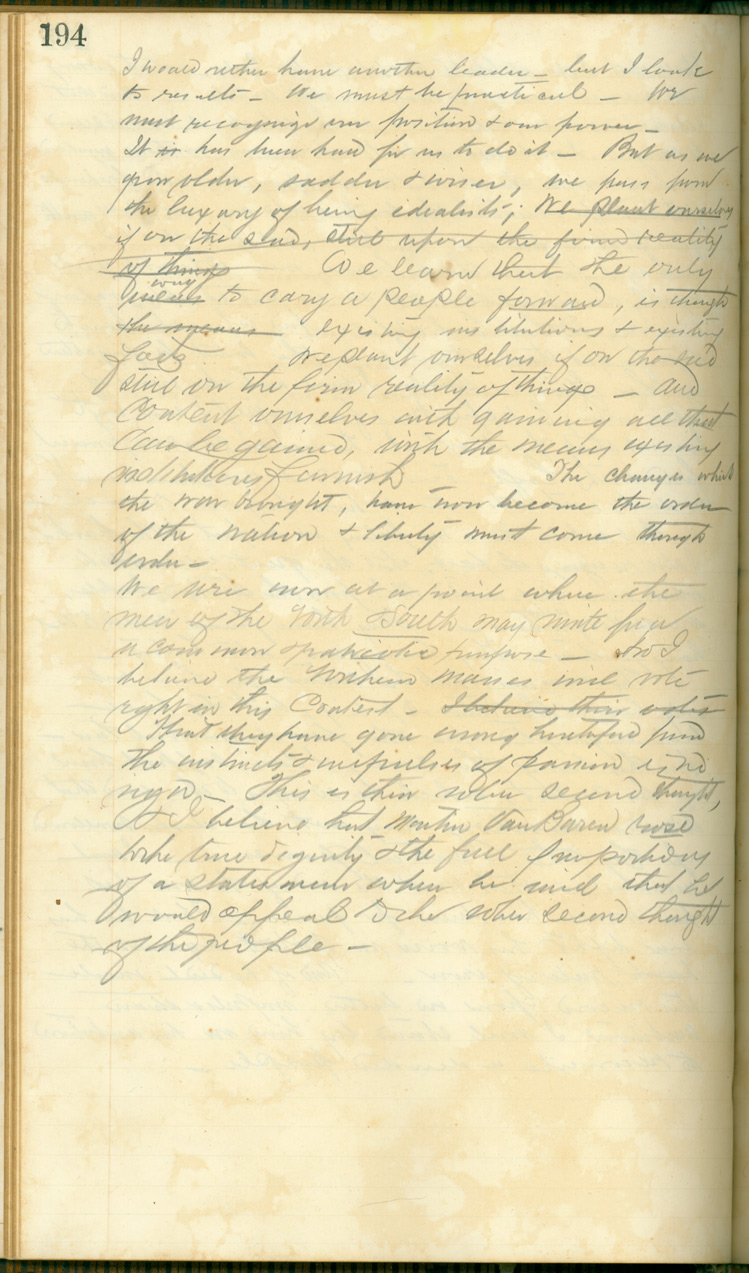 194
I would rather have another leader - but I look
to results - We must be practical - We
must recognize our position & our power -
It is has been hard for us to do it - But as we
grow older, sadder & wiser, we pass from
the luxury of being idealists; We plant ourselves
if on the sad, still upon the firm reality
of things We learn that the only
way
means to cary a people forward, is through
the means existing institutions & existing
facts We plant ourselves if on the sad
still on the firm reality of things - and
Content ourselves with gaining all that
Can be gained, with the means existing
institutions furnish The changes which
the war brought, have now become the order
of the nation & liberty must come through
order -
We are now at a point where the
men of the North & South may unite for a
a common & patriotic purpose - And I
believe the Northern masses will vote
right in this Contest - I believe their votes
That they have gone wrong heretofore from
the instincts & impulses of passion is no
This is their sober second thought,
& I believe that Martin Van Buren rose
to the true dignity & the full proportions
of a statesman when he said that he
would appeal to the sober second thought
of the people -